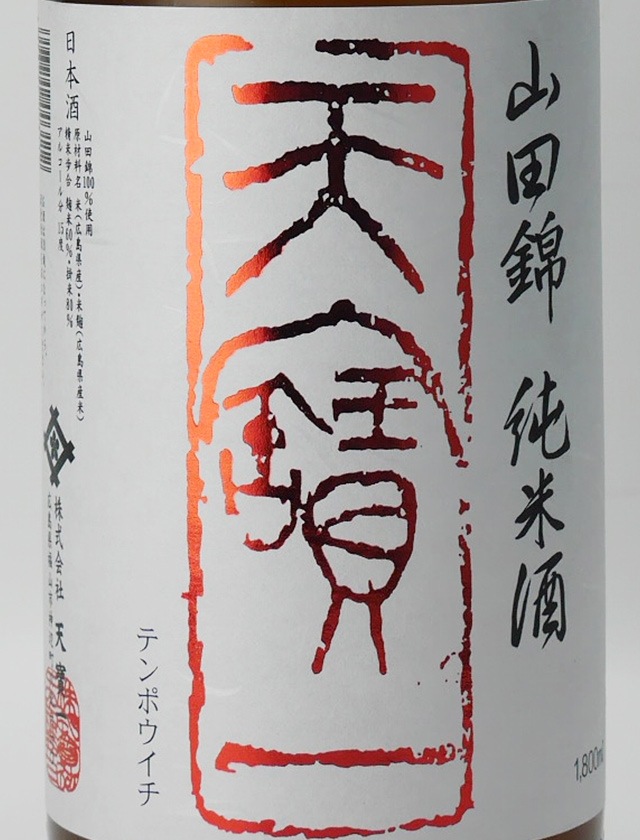 山田錦 純米酒
天寶一
テンポウイチ
日本酒
山田錦100%使用
原材料名 米(広島県産)・米麹(広島県産米)
精米歩合 麹米60%・掛米80%
アルコール分 15度
株式会社 天寶一
広島県福山市神辺町
1,800ml